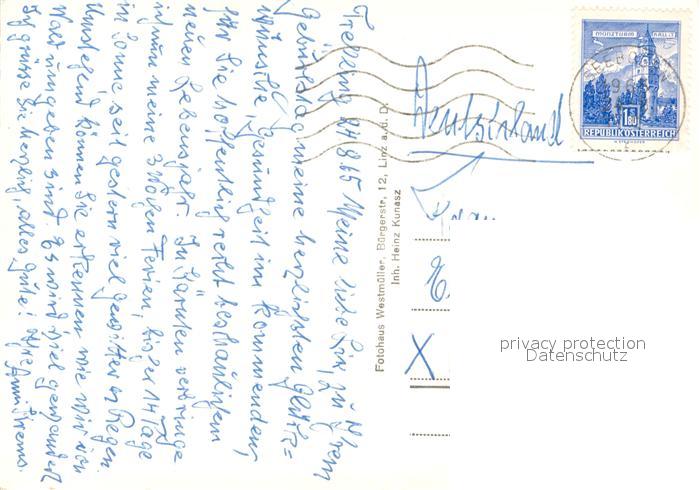 Treffling 24.8.65 Meine liebe zu Ihrem
Geburtstag meine herzlichsten Glück=
wünsche, Gesundheit im kommenden,
für Sie hoffentlich recht beschaulichen
neuen Lebensjahr. In Kärnten verbringe
ich nun meine 3 Wochen Ferien, bisher 14 Tage
in Sonne seit gestern viel Gewitter u. Regen
Umstehend können Sie erkennen wie wir in
Wald umgeben sind. Es wird viel gewandert
Ich grüsse Sie herzlich, alles Gute! Ihre
Fotohaus Westmüller, Bürgerstr. 12, Linz a. d. D.
Inh. Heinz Kunasz
Deutschland
X
MÜNZTURM HALL i. T.
S 1.80
REPUBLIK ÖSTERREICH
SEEBODEN
privacy protection
Datenschutz